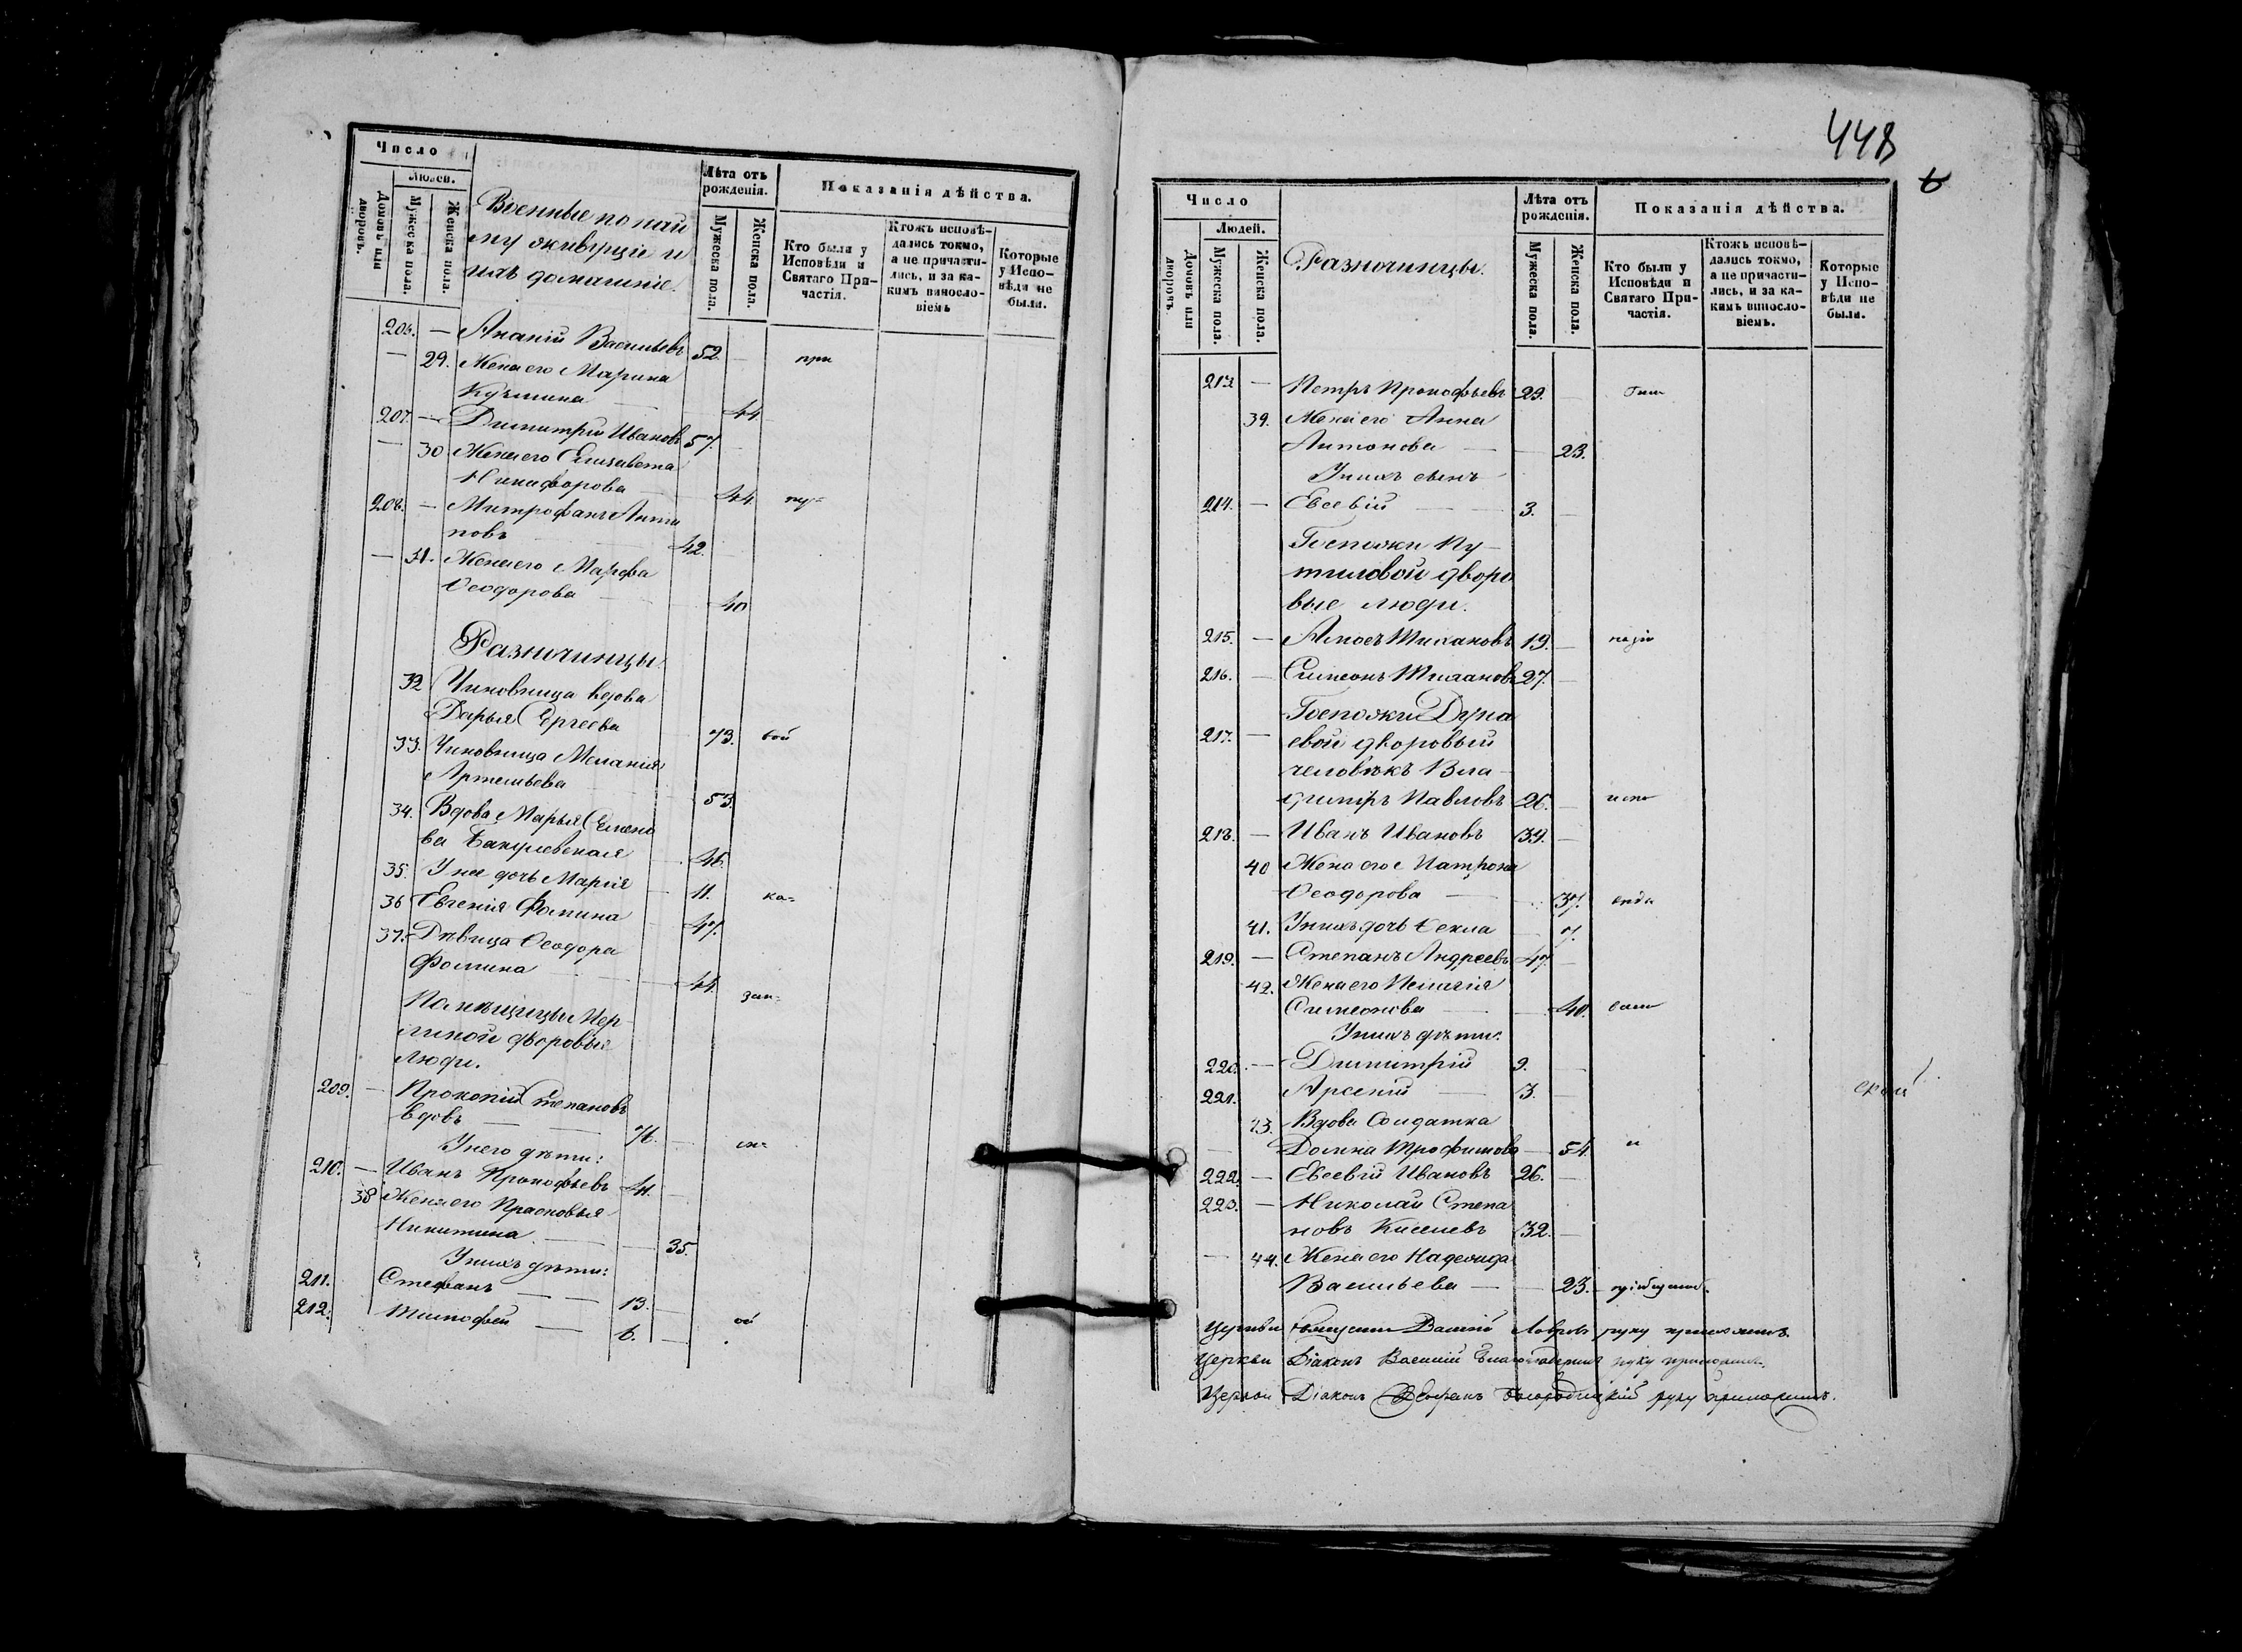 Число
Людей.
Домовъ или дворовъ.
Мужеска пола.
Женска пола.
Военные по най
му живущіе и
ихъ домашніе.
Лѣта отъ рожденія.
Мужеска пола.
Женска пола.
Показанія дѣйства.
Кто были у Исповѣди и Святаго Причастія.
Ктожъ исповѣ-
дались токмо,
а не причасти-
лись, и за ка-
кимъ винносло-
віемъ
Которые
у Испо-
вѣди не
были.
206. — Ананій Васильевъ 52. — при
— 29. Жена его Марина
Кузмина — 44.
207. — Димитрій Ивановъ 57. —
— 30. Жена его Елисавета
Никифорова — 44.
208. — Митрофанъ Анти
повъ 42. —
— 31. Жена его Марфа
Ѳеодорова — 40
Разночинцы.
32 Чиновница вдова
Дарья Сергеева 73. вой
33. Чиновница Меланія
Артемьева 53.
34. Вдова Марья Семено
ва 46.
35. У нее дочь Марія — 11. ка-
36 Евгенія Фомина — 47.
37. Дѣвица Ѳеодора
Фомина — 44. зан-
Помѣщицы
дворовые
люди.
209. — Прокопій Степановъ
вдовъ — 76. —
У него дѣти:
210. — Иванъ Прокофьевъ 44. —
38 Жена его Прасковья
Никитина — 35.
У нихъ дѣти:
211. Стефанъ — 13. —
212. Тимофей — 6. — ой
448
Число
Людей.
Домовъ или дворовъ
Мужеска пола.
Женска пола.
Разночинцы.
Лѣта отъ рожденія.
Мужеска пола.
Женска пола.
Показанія дѣйства.
Кто были у
Исповѣди и
Святаго При-
частія.
Ктожъ исповѣ-
дались токмо,
а не причасти-
лись, и за ка-
кимъ винносло-
віемъ.
Которые
у Испо-
вѣди не
были.
213. — Петръ Прокофьевъ 29. —
39. Жена его Анна
Антонова — 23.
У нихъ сынъ
214. — Евсевій — 3. —
Госпожи Пу-
тиловой дворо
вые люди.
215. — 19. —
216. — Симеонъ 27. —
Госпожи Дуна
217. — евой дворовый
человѣкъ Вла-
димиръ Павловъ 26. — испо
218. — Иванъ Ивановъ 39. —
40 Жена его Матрона
Ѳеодорова — 37.
41. У нихъ дочь Ѳекла — 7.
219. — Степанъ Андреевъ 47. —
42. Жена его Пелагія
Симеонова — 40.
У нихъ дѣти:
220. — Димитрій 9. —
221. Арсеній — 3. —
43. Вдова Солдатка
— Домна Трофимова — 54. и
222. — Евсевій Ивановъ 26. —
223. — Николай Степа
новъ Киселевъ 32. —
— 44. Жена его Надежда
Васильева — 23.
Церкви руку приложилъ
Церкви Діаконъ Василій руку приложилъ.
Церкви Діаконъ руку приложилъ.